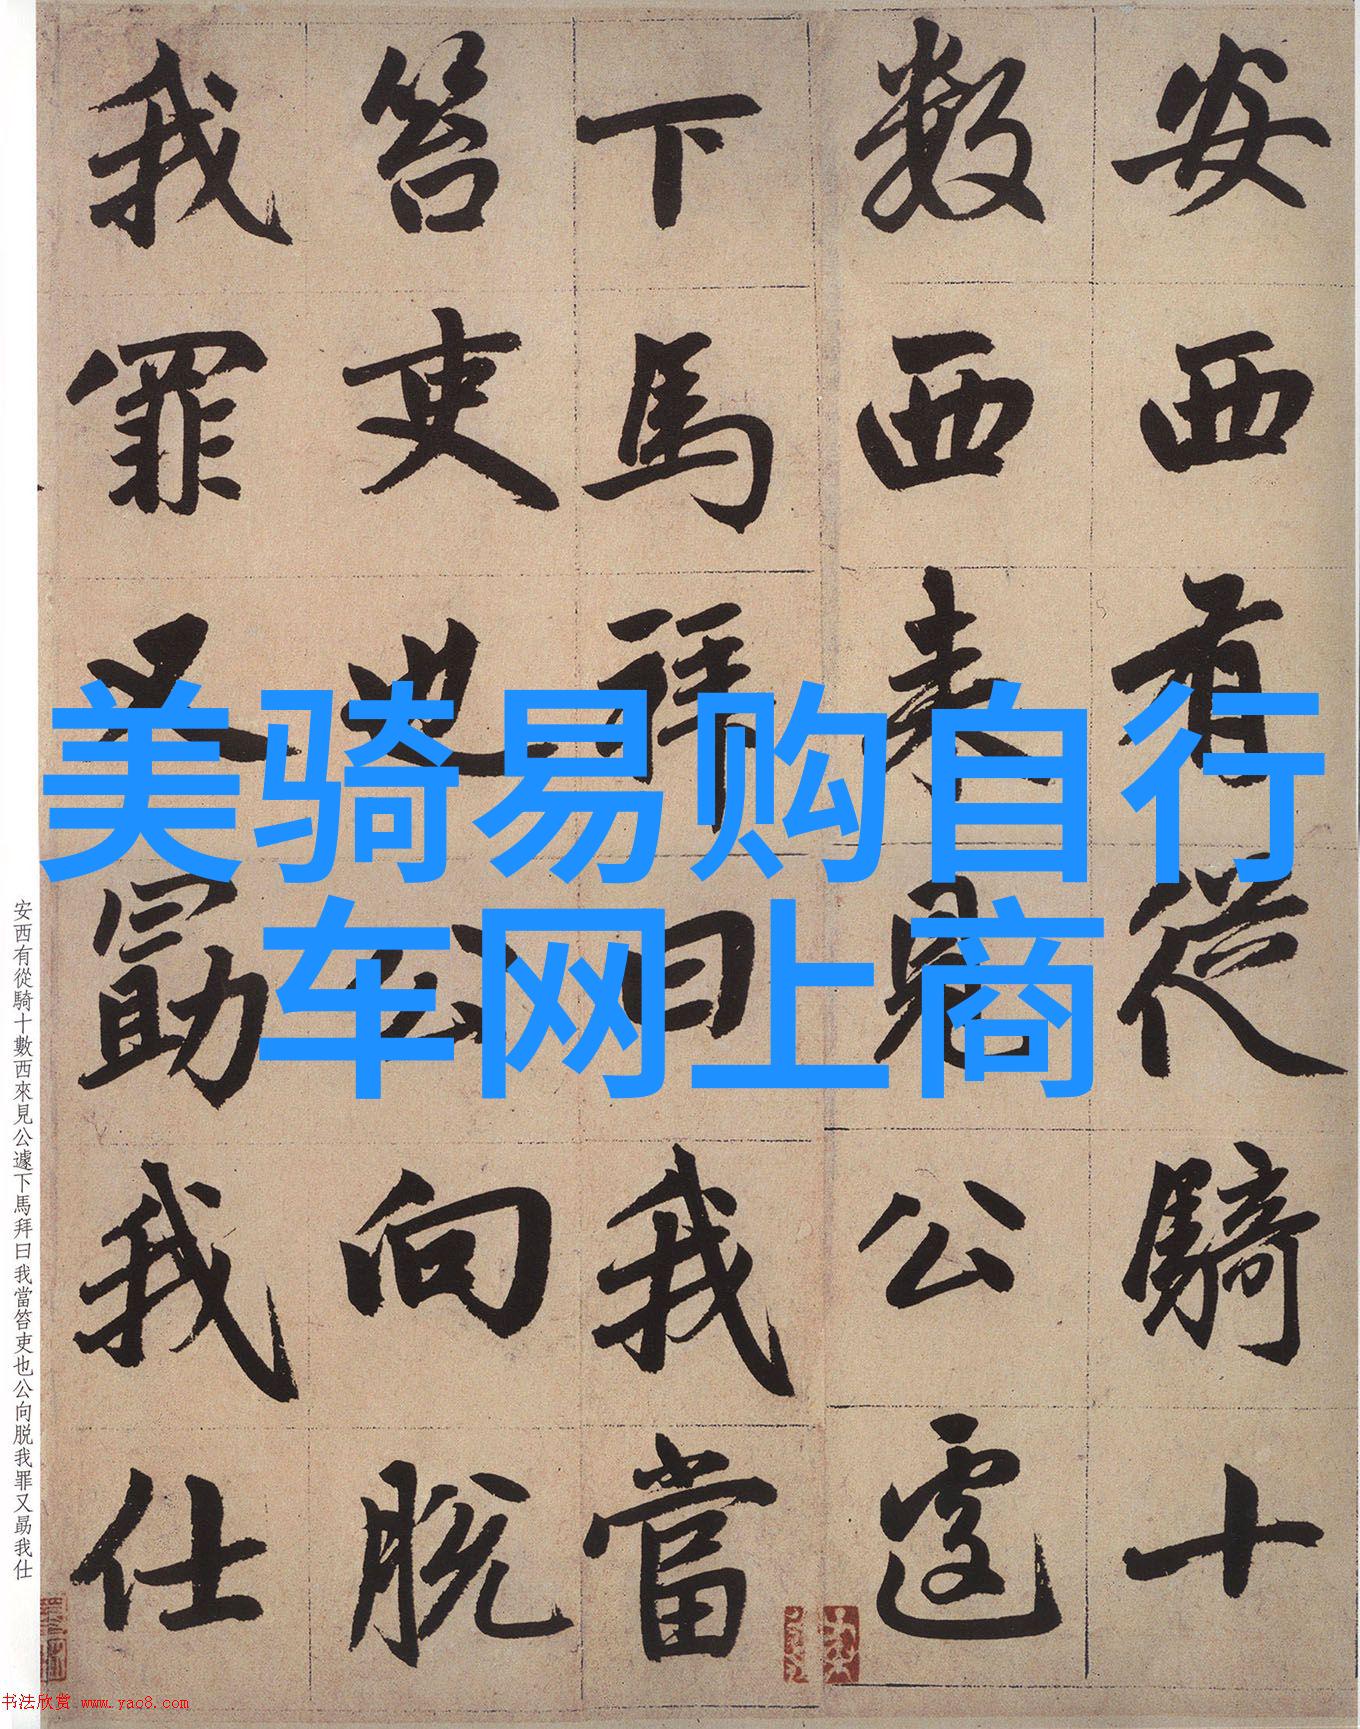 安西有從騎十
數西來見公遽
下馬拜曰我當
笞吏也公向脱
我罪又勗我仕
美骑易购自行
车网上商
安西有從騎十數西來見公遽下馬拜曰我當笞吏也公向脱我罪又勗我仕
书法欣赏 www.yac8.com